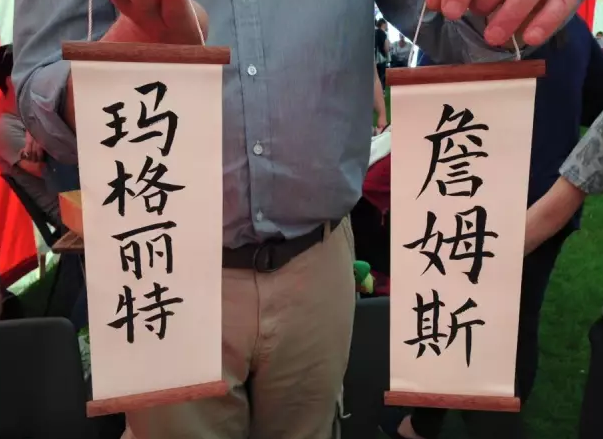 玛格丽特
詹姆斯